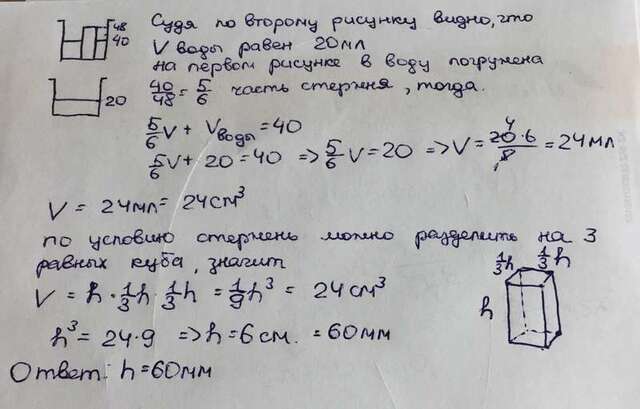 48
40
Судя по второму рисунку видно, что
V воды равен 20мл
на первом рисунке в воду погружена
20
40/48 = 5/6 часть стержня, тогда.
5/6V + Vводы = 40
5/6V + 20 = 40 => 5/6V = 20 => V = 20·6/5 = 24мл
V = 24мл = 24см³
по условию стержень можно разделить на 3
равных куба, значит
1/3h 1/3h
V = h · 1/3h · 1/3h = 1/9h³ = 24см³
h
h³ = 24·9 => h = 6см. = 60мм
Ответ: h = 60мм